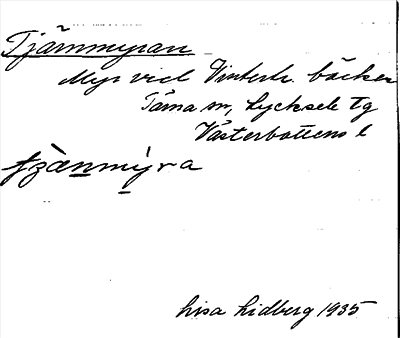 Tjärnmyran
Myr vid Vinterb. bäcken
Tärna sn, Lycksele tg
Västerbottens l
tʒànmýra
Lisa Lidberg 1935